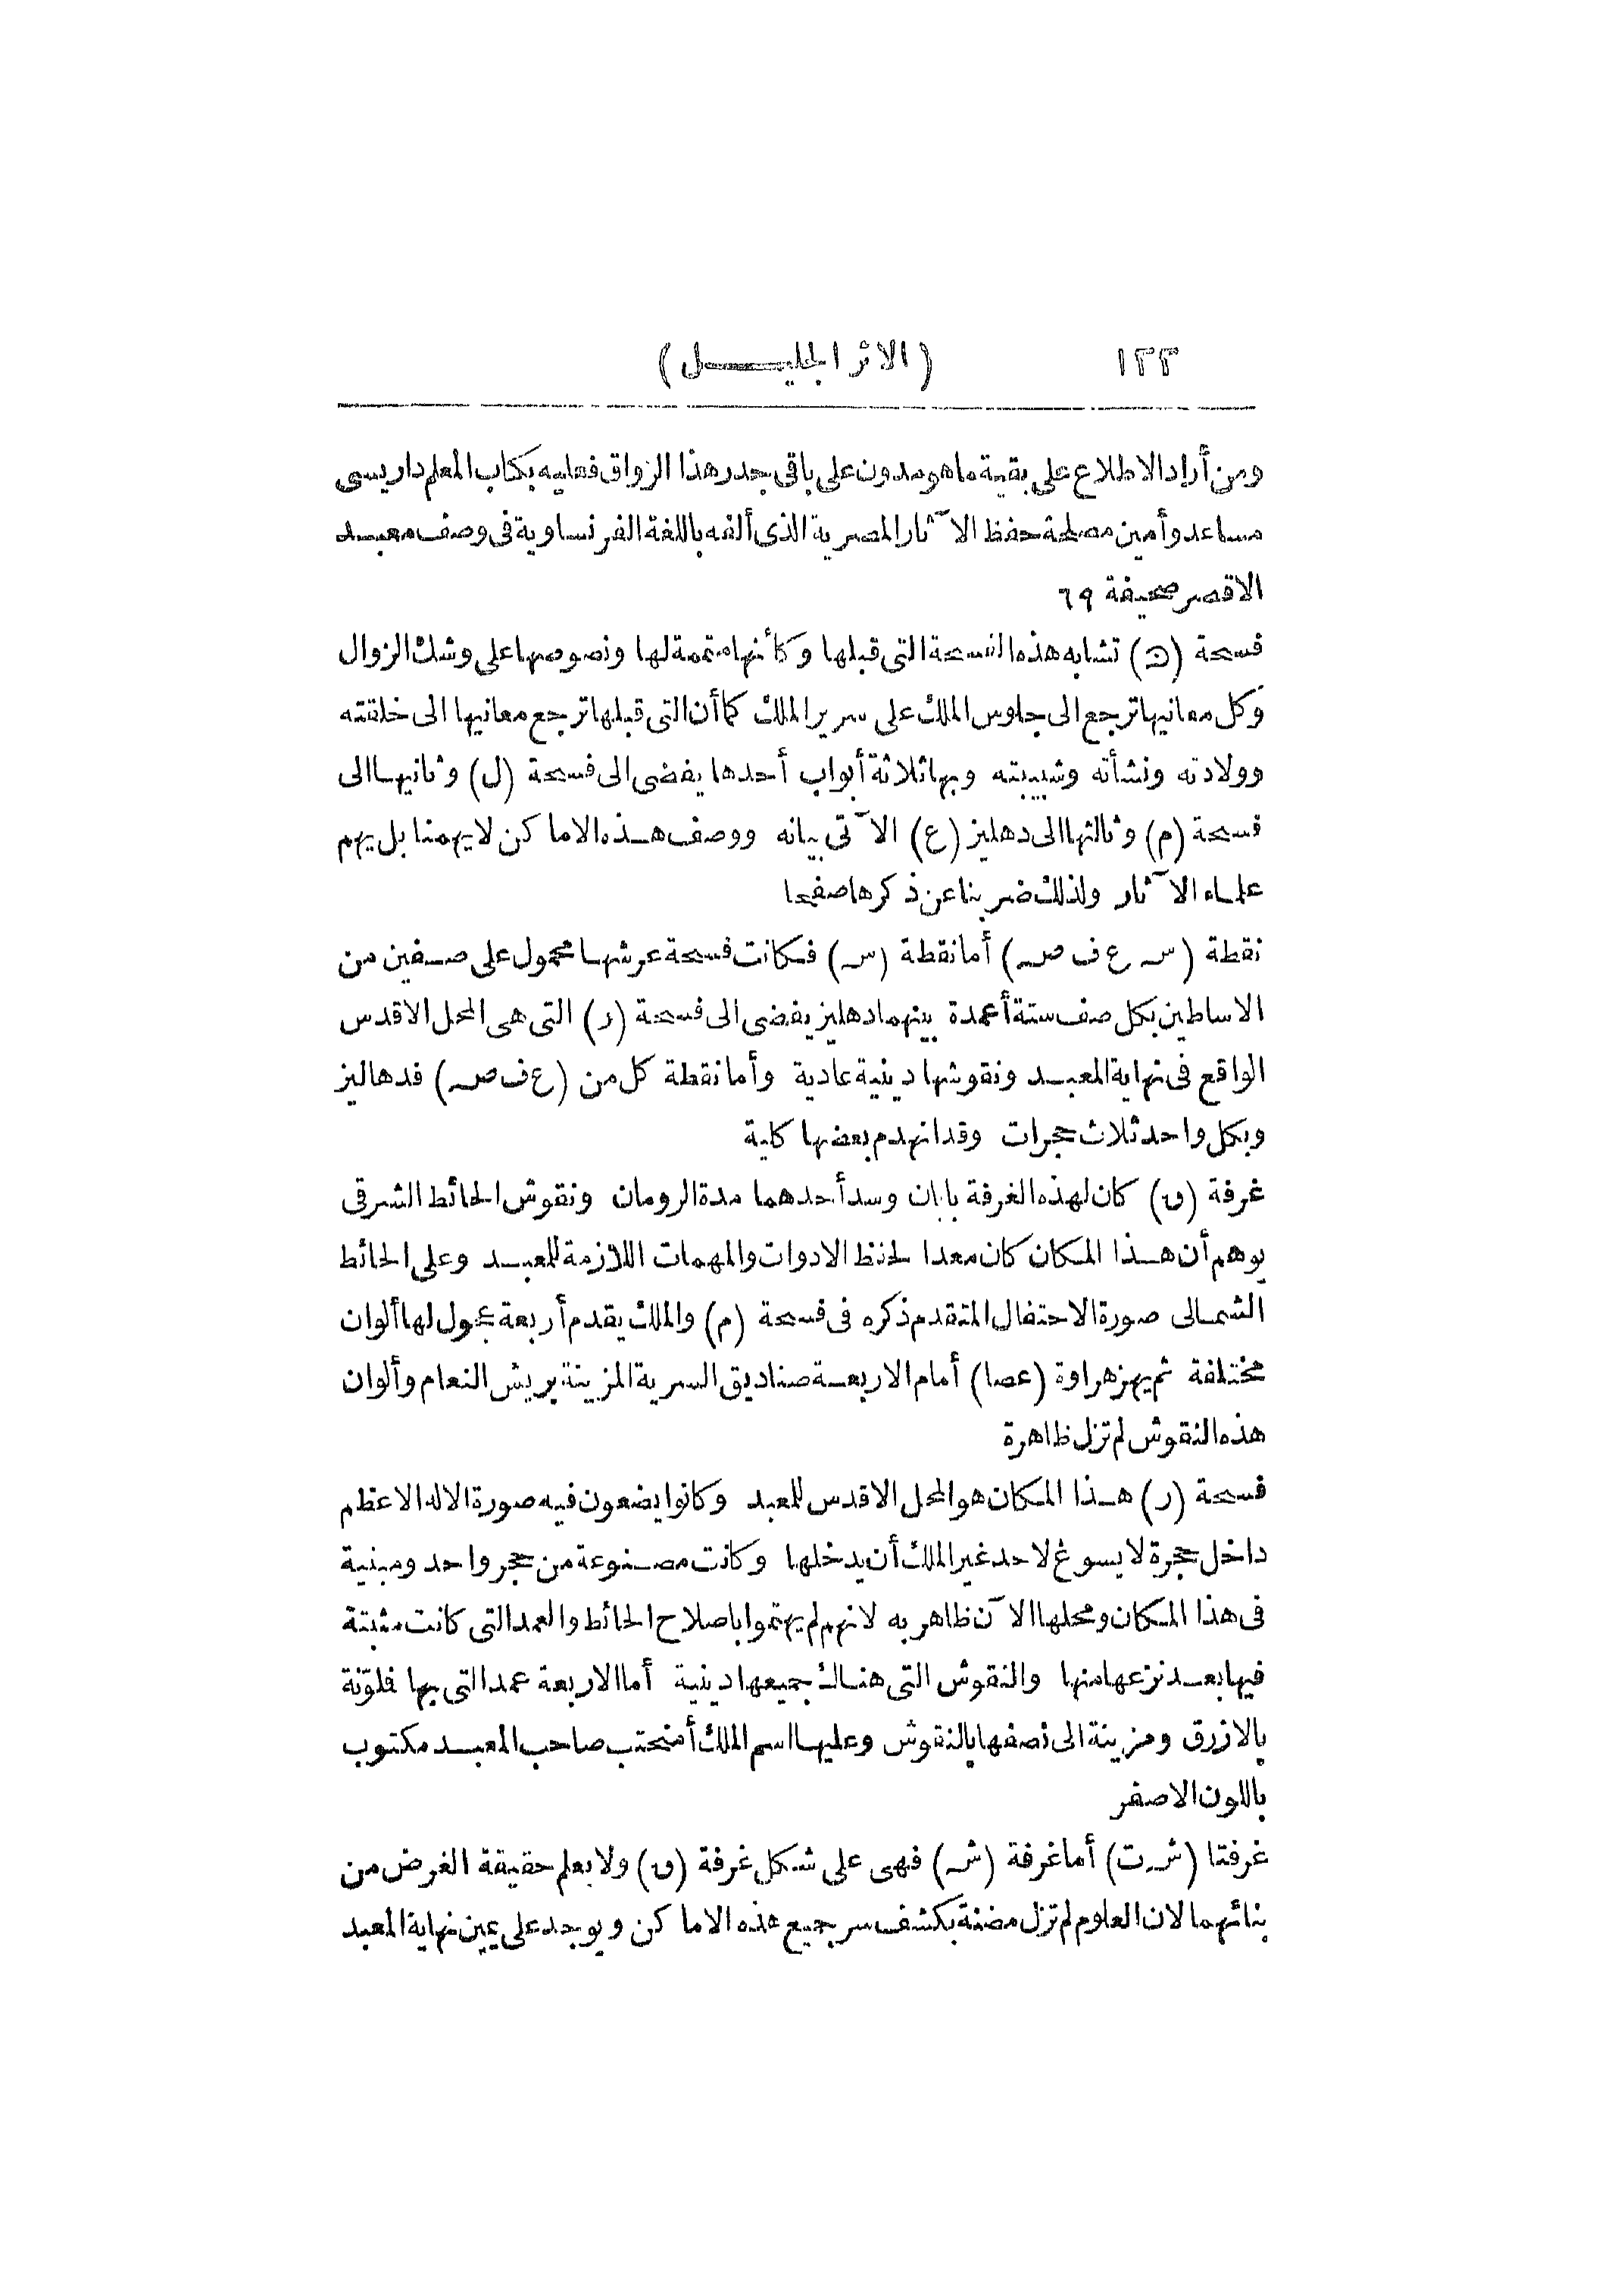 ١٢٢ (الاثر الجليل)
ومن أراد الاطلاع على بقية ماهو مدون على باقى جدر هذا الرواق فعليه بكتاب المعلم داريسى
مساعد وأمين مصلحة حفظ الآثار المصرية الذى ألفه باللغة الفرنساوية فى وصف معبد
الاقصر صحيفة ٦٩
فسحة (ن) تشابه هذه الفسحة التى قبلها وكأنها متممة لها ونصوصها على وشك الزوال
وكل معانيها ترجع الى جلوس الملك على سرير الملك كما أن التى قبلها ترجع معانيها الى خلقته
وولادته ونشأته وشبيبته وبها ثلاثة أبواب أحدها يفضى الى فسحة (ل) وثانيها الى
فسحة (م) وثالثها الى دهليز (ع) الآتى بيانه ووصف هذه الاماكن لايهمنا بل يهم
علماء الآثار ولذلك ضربنا عن ذكرها صفحا
نقطة (س ع ف ص) أما نقطة (س) فكانت فسحة عرشها محمول على صفين من
الاساطين بكل صف ستة أعمدة بينهما دهليز يفضى الى فسحة (ر) التى هى المحل الاقدس
الواقع فى نهاية المعبد ونقوشها دينية عادية وأما نقطة كل من (ع ف ص) فدهاليز
وبكل واحد ثلاث حجرات وقد انهدم بعضها كلية
غرفة (ق) كان لهذه الغرفة بابان وسد أحدهما مدة الرومان ونقوش الحائط الشرقى
يوهم أن هذا المكان كان معدا لحفظ الادوات والمهمات اللازمة للمعبد وعلى الحائط
الشمالى صورة الاحتفال المتقدم ذكره فى فسحة (م) والملك يقدم أربعة عجول لها ألوان
مختلفة ثم يهز هراوة (عصا) أمام الاربعة صناديق السرية المزينة بريش النعام وألوان
هذه النقوش لم تزل ظاهرة
فسحة (ر) هذا المكان هو المحل الاقدس للمعبد وكانوا يضعون فيه صورة الاله الاعظم
داخل حجرة لايسوغ لاحد غير الملك أن يدخلها وكانت مصنوعة من حجر واحد ومبنية
فى هذا المكان ومحلها الآن ظاهر به لانهم لم يهتموا باصلاح الحائط والعمد التى كانت مثبتة
فيها بعد نزعها منها والنقوش التى هناك جميعها دينية أما الاربعة عمد التى بها فلونة
بالازرق ومزينة الى نصفها بالنقوش وعليها اسم الملك أمنحتب صاحب المعبد مكتوب
باللون الاصفر
غرفتا (ش ت) أما غرفة (ش) فهى على شكل غرفة (ق) ولا يعلم حقيقة الغرض من
بنائهما لان العلوم لم تزل مضنة بكشف سر جميع هذه الاماكن ويوجد على يمين نهاية المعبد